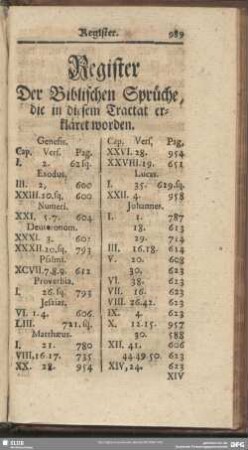 Register.
989
Register
Der Biblischen Sprüche,
die in diesem Tractat er-
kläret worden.
Genesis.
Cap. Vers. Pag.
I. 2. 62sq.
Exodus.
III. 2, 600
XXIII. 10.sq. 600
Numeri.
XXI. 5.7. 604
Deuteronom.
XXXI. 3. 601
XXXII. 10.sq. 793
Psalmi.
XCVII. 7.8.9. 612
Proverbia.
I. 26.sq. 793
Jesaias.
VI. 1.4. 606.
LIII. 721.sq.
Matthæus.
I. 21. 780
VIII, 16.17. 735
XX. 28. 954
Cap. Vers, Pag,
XXVI. 28. 954
XXVIII. 19. 651
Lucas.
I. 35. 619.sq.
XXII. 4. 958
Johannes.
I. 1. 787
18. 613
29. 714
III. 16.18. 614
V. 20. 608
30. 623
VI. 38. 623
VII. 16. 623
VIII. 26.42. 623
IX. 4. 623
X. 12.15. 957
30. 588
XII. 41. 606
44.49.50 623
XIV, 24. 623
XIV
SLUB